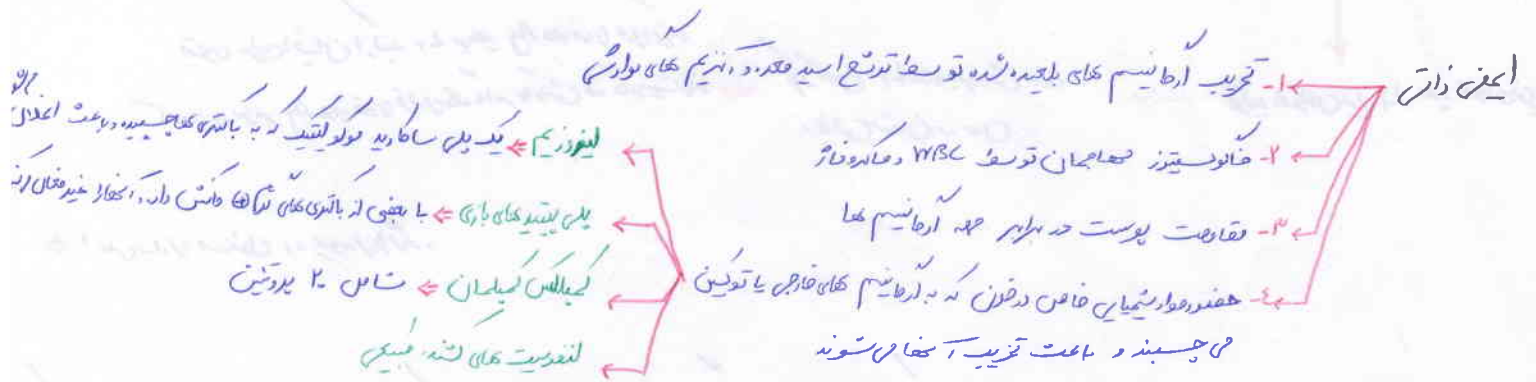 ایمنی ذاتی
۱- تخریب ارگانیسم های بلعیده شده توسط ترشح اسید معده و آنزیم های گوارشی
۲- فاگوسیتوز مهاجمان توسط WBC و ماکروفاژ
۳- مقاومت پوست در برابر همه ارگانیسم ها
۴- حضور مواد شیمیایی خاص در خون که به ارگانیسم های خارجی یا توکسین
می چسبند و باعث تخریب آنها می شوند
لیزوزیم ⇐ یک پلی ساکارید موکولیتیک که به باکتری ها چسبیده و باعث انحلال
پلی پپتید های بازی ⇐ با بعضی از باکتری های گرم واکنش داده، آنها را غیر فعال
کمپلکس کمپلمان ⇐ شامل ۲۰ پروتئین
لنفوسیت های کشنده طبیعی